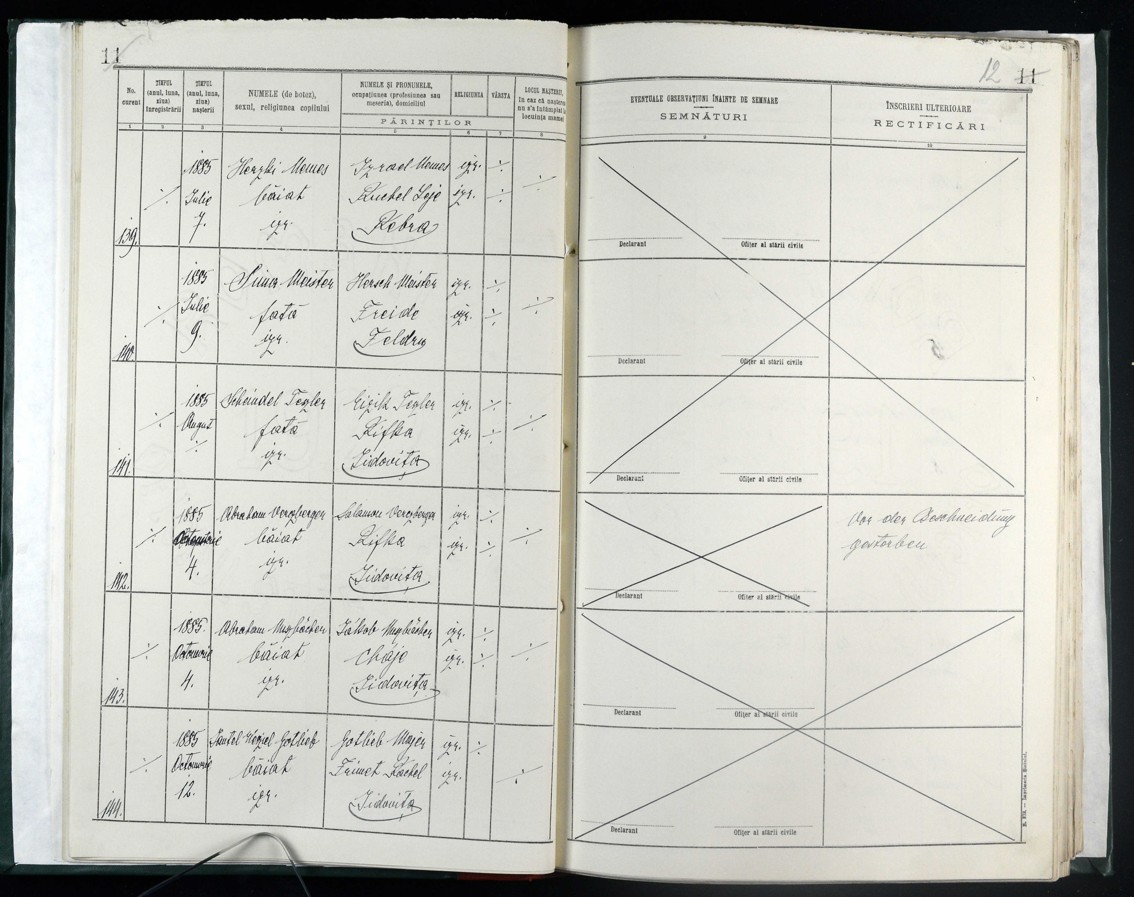 11
No. curent
TIMPUL (anul, luna, ziua) înregistrării
TIMPUL (anul, luna, ziua) nașterii
NUMELE (de botez), sexul, religiunea copilului
NUMELE ȘI PRONUMELE, ocupațiunea (profesiunea sau meseria), domiciliul
RELIGIUNEA
VÂRSTA
PĂRINȚILOR
LOCUL NAȘTEREI,
1 2 3 4 5 6 7 8
139.
1885
Iulie
7.
Herzki Memos
băiat
izr.
Izrael Memos
Ruchel Leje
Rebra
izr.
izr.
140.
1885
Iulie
9.
Sima Meister
fată
izr.
Hersch Meister
Freide
Feldru
izr.
izr.
141.
1885
August
Scheindel Tegler
fată
izr.
Eizik Tegler
Rifka
Jidovița
izr.
izr.
142.
1885
Octomvrie
4.
Abraham Verzberger
băiat
izr.
Salamon Verzberger
Rifka
Jidovița
izr.
izr.
143.
1885.
Octomvrie
4.
Abraham Nuszbächer
băiat
izr.
Jakob Nuszbächer
Chaje
Jidovița
izr.
izr.
144.
1885
Octomvrie
12.
Gotlieb
băiat
izr.
Gotlieb Majer
Frimet Rachel
Jidovița
izr.
izr.
12 11
EVENTUALE OBSERVAȚIUNI ÎNAINTE DE SEMNARE
SEMNĂTURI
ÎNSCRIERI ULTERIOARE
RECTIFICĂRI
9 10
Declarant Ofițer al stării civile
Declarant Ofițer al stării civile
Declarant Ofițer al stării civile
Vor der Beschneidung
gestorben
Declarant Ofițer al stării civile
Declarant Ofițer al stării civile
Declarant Ofițer al stării civile